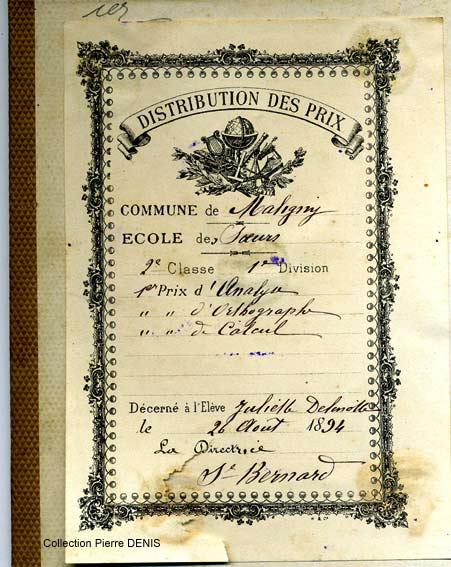 1er
DISTRIBUTION DES PRIX
COMMUNE de Maligny
ECOLE des Sœurs
2e Classe 1re Division
1er Prix d'Analyse
" " d'Orthographe
" " de Calcul
Décerné à l'Elève Juliette
le 26 Août 1894
La Directrice
Sr Bernard
Collection Pierre DENIS